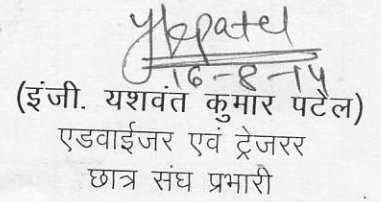 ykpatel
16-8-14
(इंजी. यशवंत कुमार पटैल)
एडवाईजर एवं ट्रेजरर
छात्र संघ प्रभारी